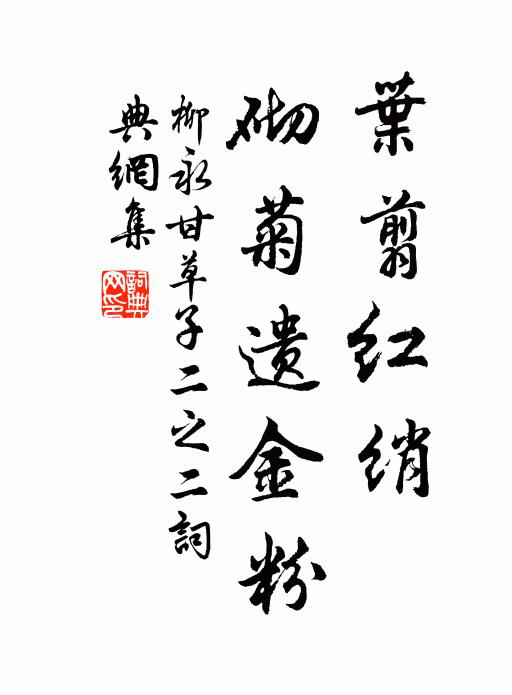 葉翦紅綃
砌菊遺金粉
柳永甘草子二之二詞
典網集
詞典網印